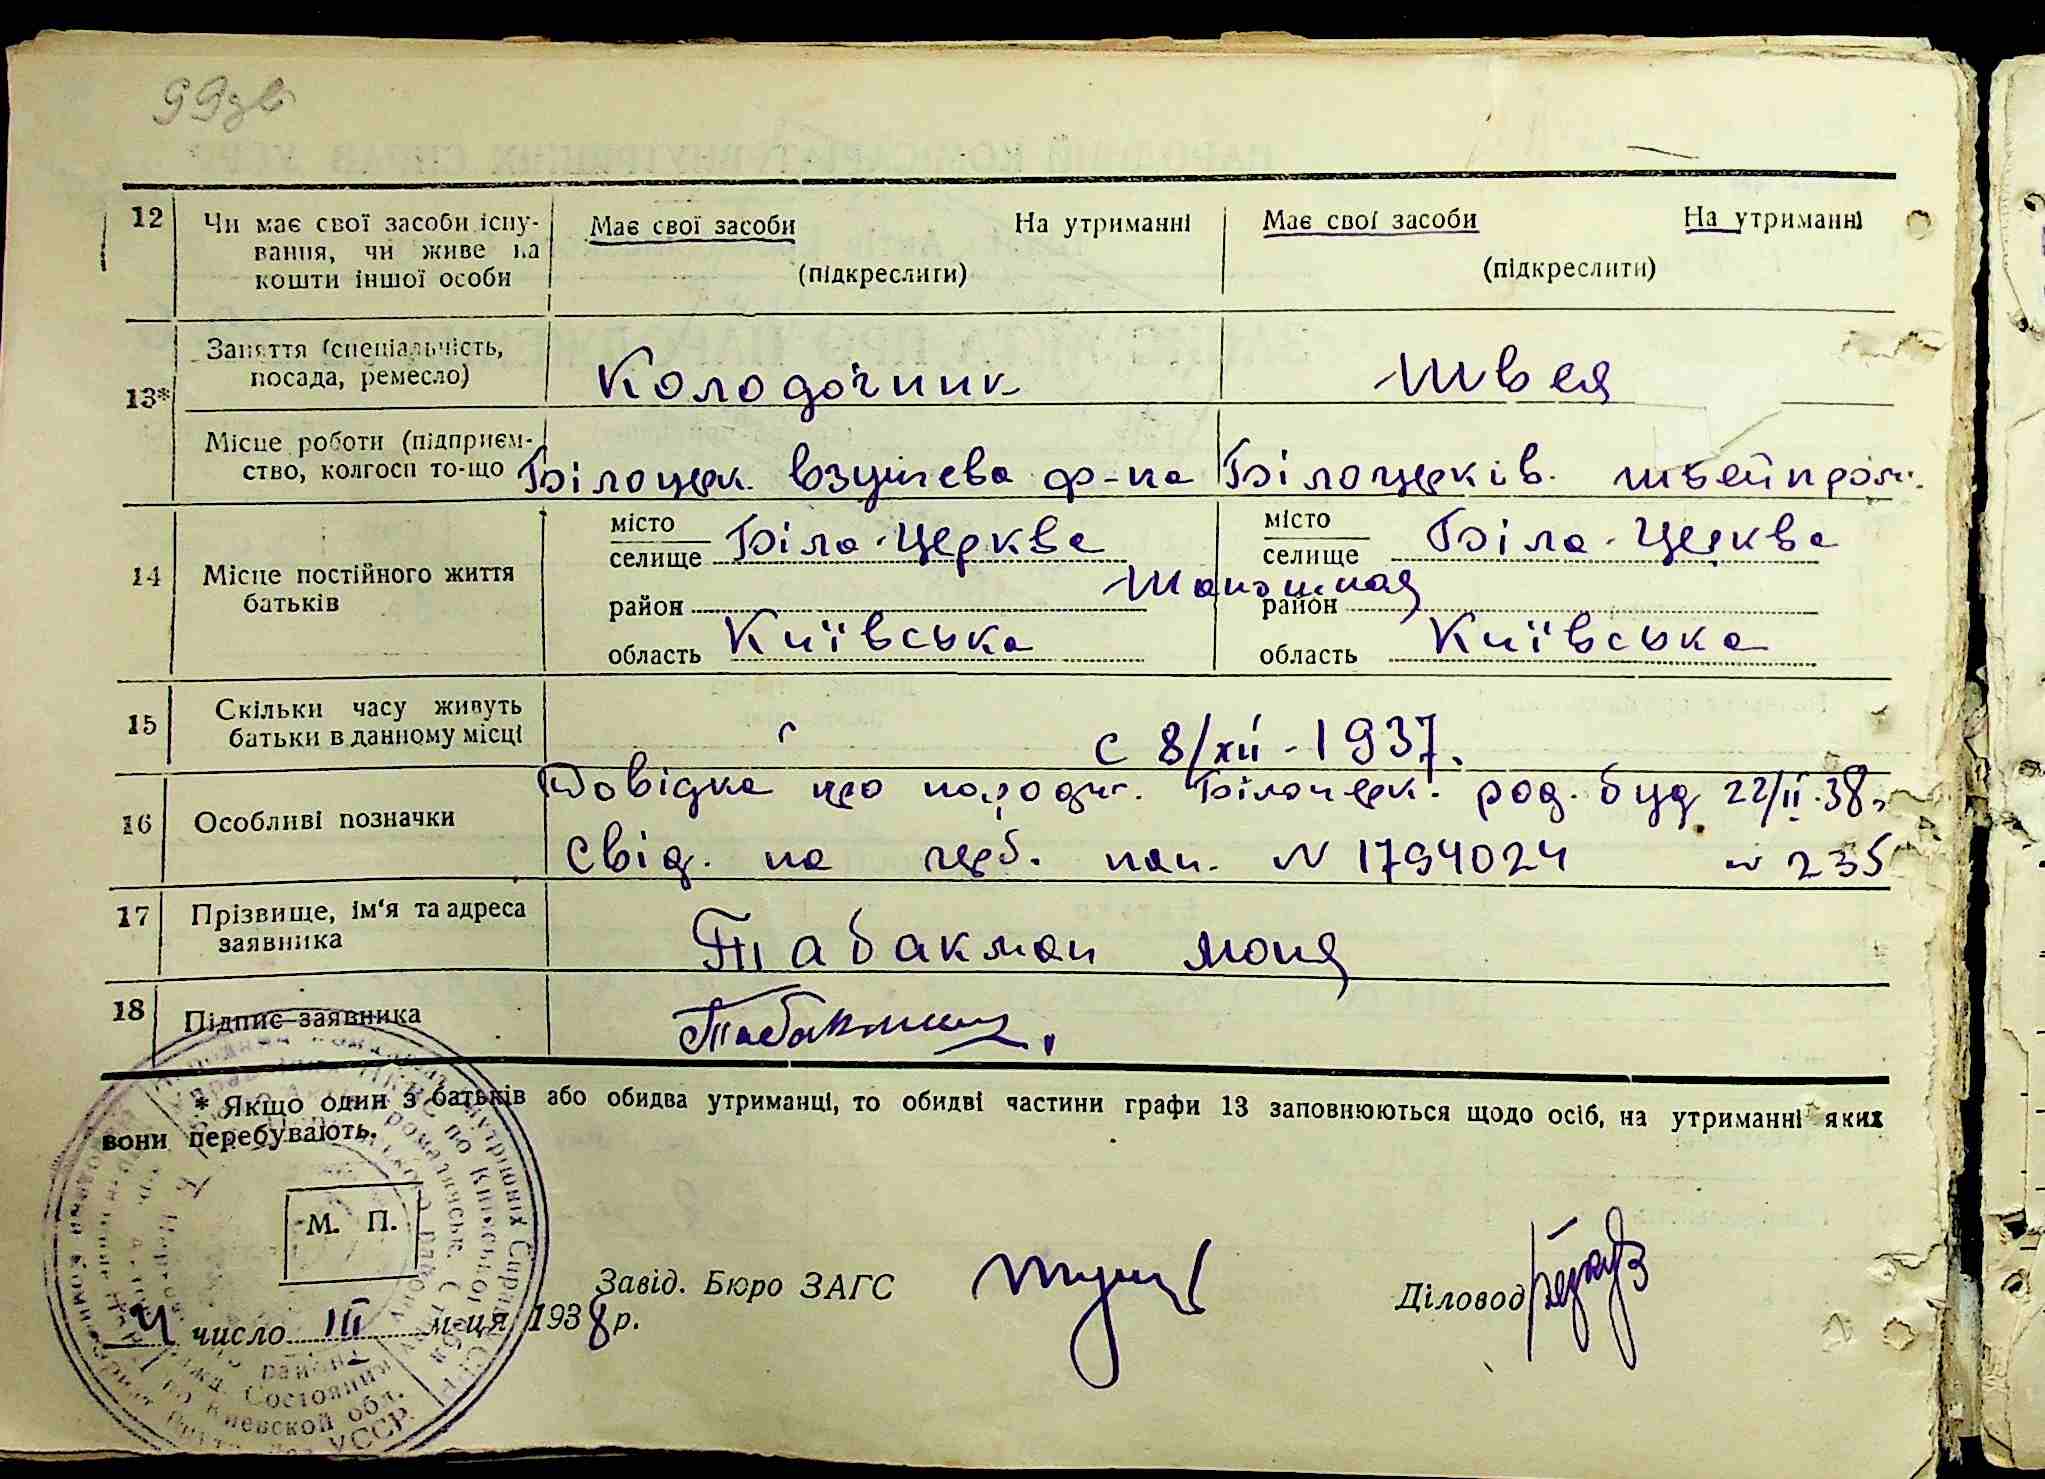 99зв
12 Чи має свої засоби існу-
вання, чи живе на
кошти іншої особи
Має свої засоби На утриманні
(підкреслити)
Має свої засоби На утриманні
(підкреслити)
13* Заняття (спеціальність,
посада, ремесло)
Колодочник Швея
Місце роботи (підприєм-
ство, колгосп то-що
Білоцерк. взуттєва ф-ка Білоцерків. швейпром.
14 Місце постійного життя
батьків
місто
селище Біла-Церква
район
область Київська
місто
селище Біла-Церква
район
область Київська
15 Скільки часу живуть
батьки в данному місці
с 8/XII-1937.
16 Особливі позначки
Довідка про народж. Білоцерк. род. буд 22/II.38
Свід. на герб. пап. N 1794024 N 235
17 Прізвище, ім'я та адреса
заявника
Табакман Моня
18 Підпис заявника
Табакман
* Якщо один з батьків або обидва утриманці, то обидві частини графи 13 заповнюються щодо осіб, на утриманні яких
вони перебувають.
М. П.
Завід. Бюро ЗАГС Діловод
4 число III м-ця 1938 р.